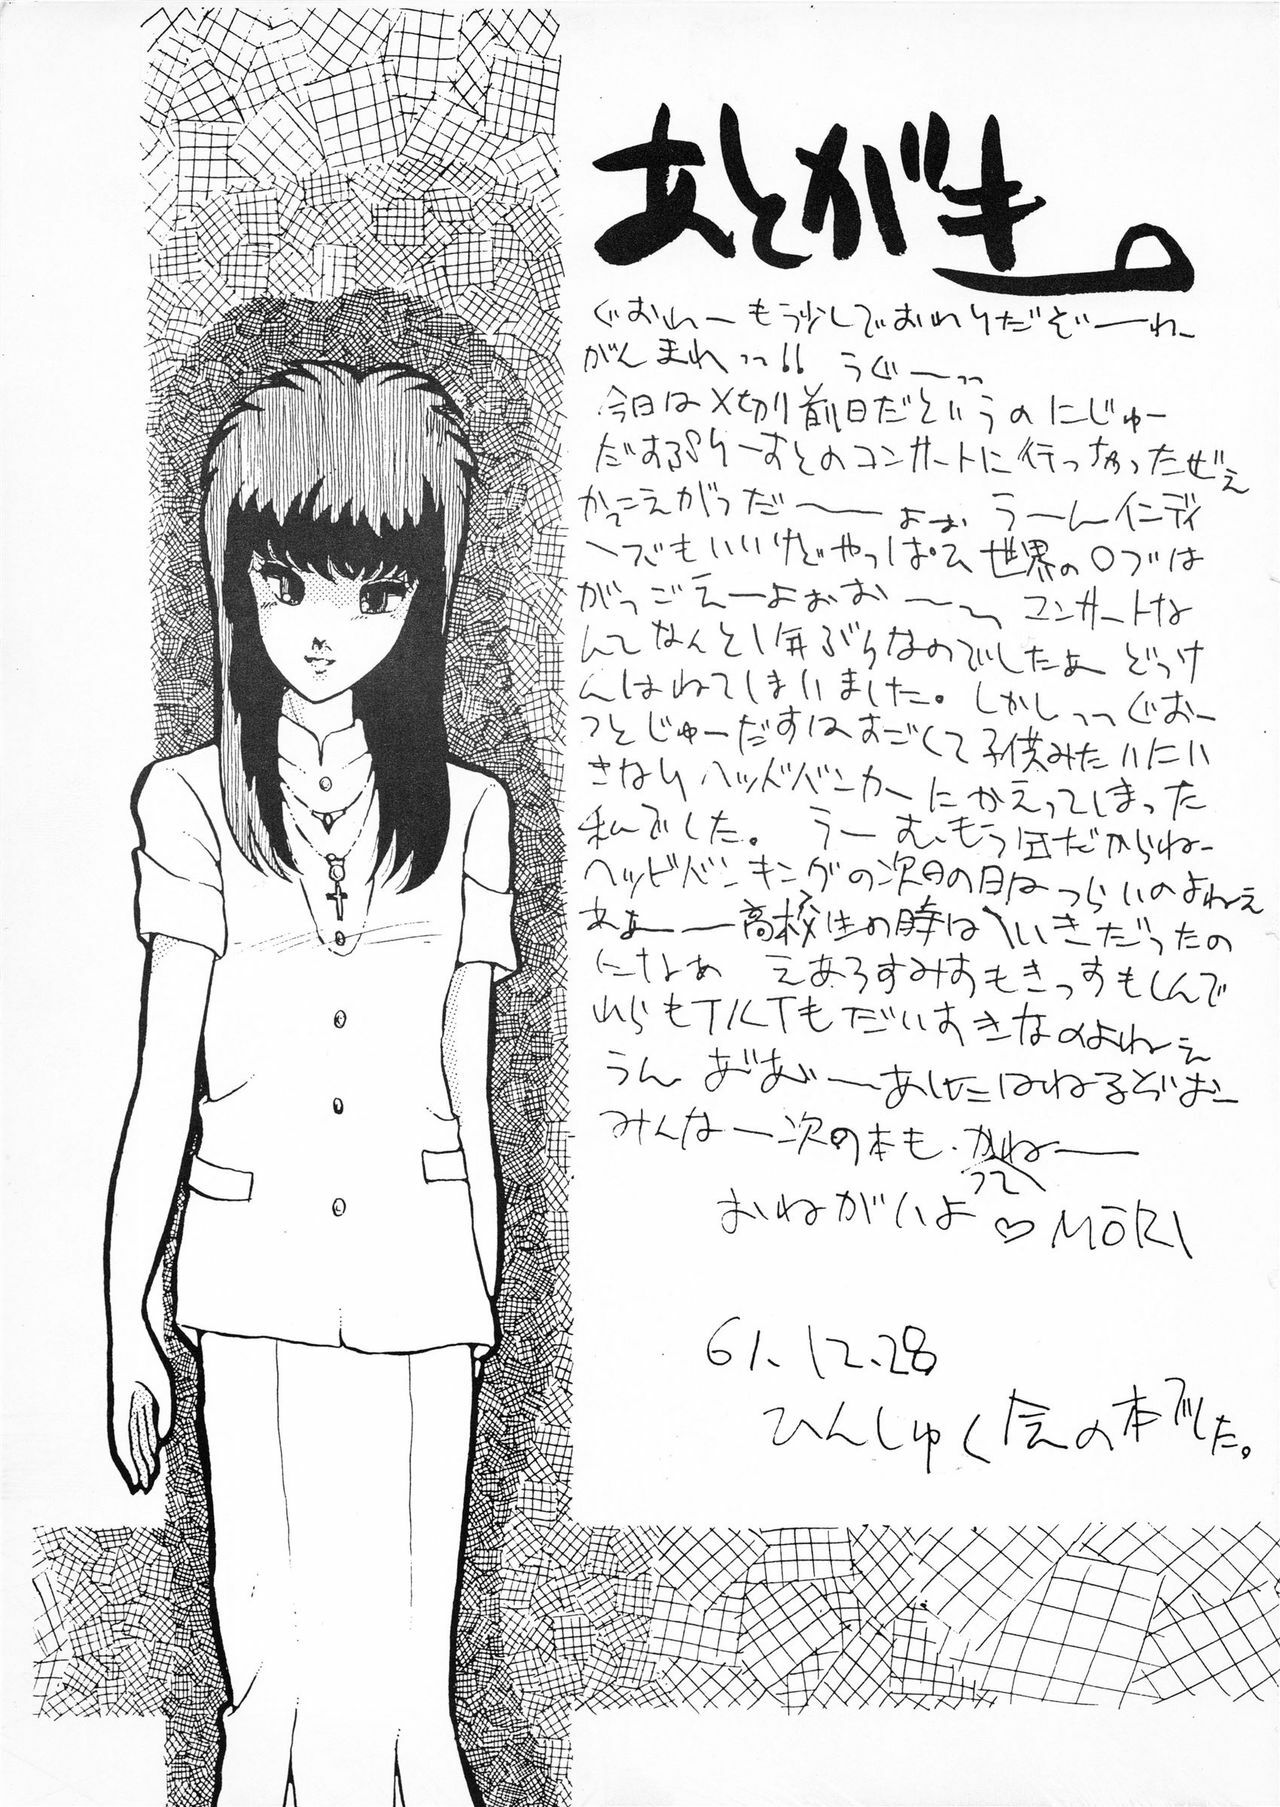 あとがき。
ぐおわーもう少しでおわりだぞーわー
がんまれっっ!! うぐーっっ
今日は〆切り前日だというのにじゅー
だすぷりーすとのコンサートに行っちゃったぜぇ
かっこえがうだ〜ーよぉぉ うーんインディ
ーズでもいいけどやっぱっ世界のロブは
がっごえーーよぉぉお〜〜 コンサートな
んてなんと1年ぶりなのでしたぁー どっけ
んはねてしまいました。しかしっっぐおー
っとじゅーだすはすごくて子供みたいにい
きなりヘッドバンカーにかえってしまった
私でした。 うーむ、もう
だからねー
ヘッドバンキングの次の日はつらいのよねぇ
あぁーー高校生の時はへいきだったの
になぁ えあろすみすもきっすもしんで
れらもT/K/Tもだいすきなのよねーぇ
うん あ゛あ゛ーーあしたはねるぞぉおー
みんなー次の本も、かってねーー
おねがいよ♡MORI
61.12.28
ひんしゅく会の本でした。